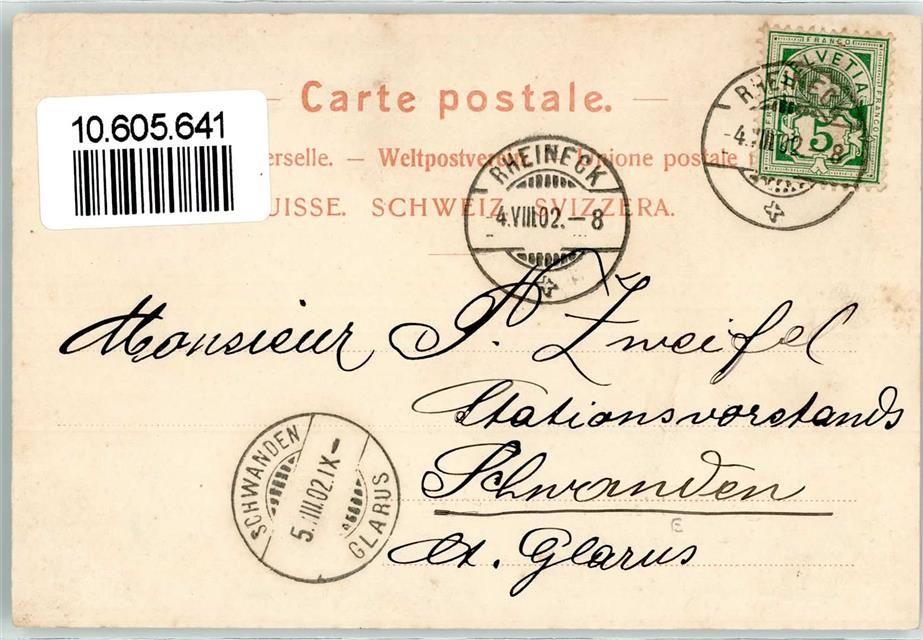 Carte postale.
10.605.641
erselle. — Weltpostverein. — Unione postale
UISSE. SCHWEIZ. SVIZZERA.
FRANCO
HELVETIA
FRANCO
5
RHEINECK
-4.VIII.02.-8
RHEINECK
-4.VIII.02.-8
Monsieur P. Zweifel
Stationsvorstands
Schwanden
Ct. Glarus
SCHWANDEN
5.VIII.02.IX-
GLARUS
E